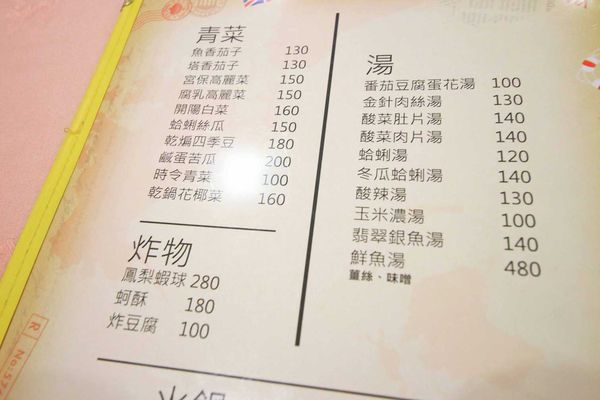 青菜
魚香茄子 130
塔香茄子 130
宮保高麗菜 150
腐乳高麗菜 150
開陽白菜 160
蛤蜊絲瓜 150
乾煸四季豆 180
鹹蛋苦瓜 200
時令青菜 100
乾鍋花椰菜 160
炸物
鳳梨蝦球 280
蚵酥 180
炸豆腐 100
湯
番茄豆腐蛋花湯 100
金針肉絲湯 130
酸菜肚片湯 140
酸菜肉片湯 140
蛤蜊湯 120
冬瓜蛤蜊湯 140
酸辣湯 130
玉米濃湯 100
翡翠銀魚湯 140
鮮魚湯 480
薑絲、味噌
火鍋
R No.57